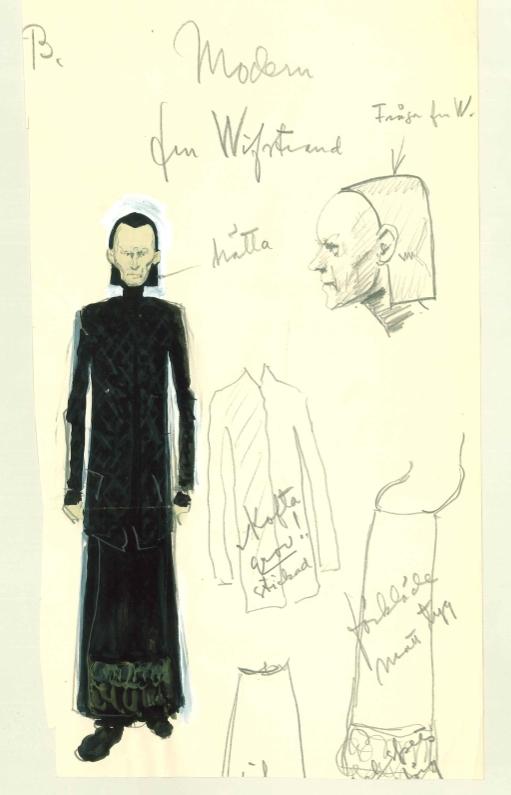 B.
Modern
fru Wifstrand
Fråga fru W.
hätta
Kofta
grov!
stickad
förkläde
matt tyg